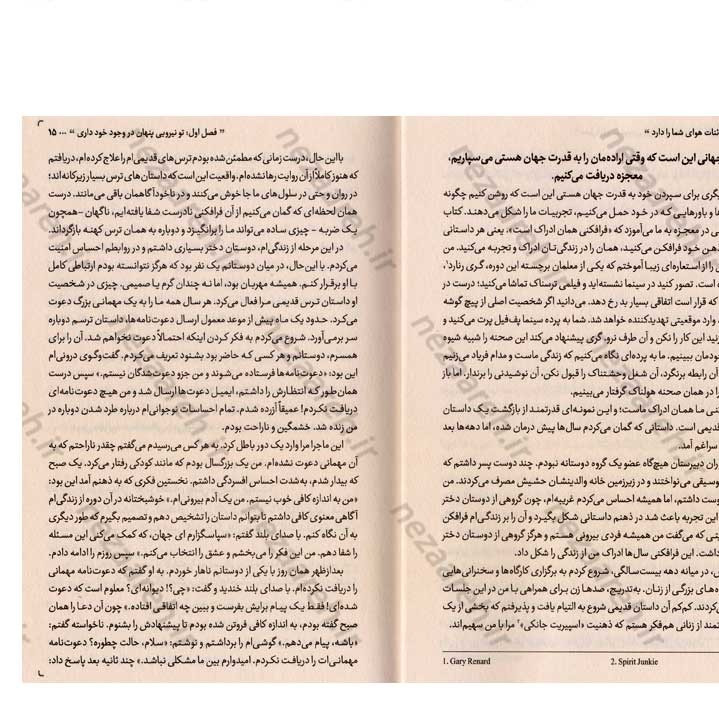 ئنات هوای شما را دارد »
جهانی این است که وقتی اراده‌مان را به قدرت جهان هستی می‌سپاریم،
معجزه دریافت می‌کنیم.
یگری برای سپردن خود به قدرت جهان هستی این است که روشن کنیم چگونه
ها و باورهایی که در خود حمل می‌کنیم، تجربیات ما را شکل می‌دهند. کتاب
ی در معجزه به ما می‌آموزد که «فرافکنی همان ادراک است»، یعنی هر داستانی
ذهن خود فرافکن می‌کنید، همان را در زندگی‌تان ادراک و تجربه می‌کنید. من
را از استعاره‌ای زیبا آموختم که یکی از معلمان برجسته این دوره، گری رنارد۱،
ه است. تصور کنید در سینما نشسته‌اید و فیلمی ترسناک تماشا می‌کنید؛ درست در
که قرار است اتفاقی بسیار بد رخ دهد. می‌دانید اگر شخصیت اصلی از پیچ گوشه
، وارد موقعیتی تهدیدکننده خواهد شد. شما به پرده سینما پف‌فیل پرت می‌کنید و
زنید این کار را نکن و آن طرف نرو. گری پیشنهاد می‌کند این صحنه را شبیه شیوه
خودمان ببینیم. ما به پرده‌ای نگاه می‌کنیم که زندگی ماست و مدام فریاد می‌زنیم
آن رابطه برنگرد، آن شغل وحشتناک را قبول نکن، آن نوشیدنی را برندار. اما باز
را در همان صحنه هولناک گرفتار می‌بینیم.
نی ما همان ادراک ماست؛ و این نمونه‌ای قدرتمند از بازگشت یک داستان
قدیمی است. داستانی که گمان می‌کردم سال‌ها پیش درمان شده، اما دهه‌ها بعد
سراغم آمد.
ران دبیرستان هیچ‌گاه عضو یک گروه دوستانه نبودم. چند دوست پسر داشتم که
وسیقی می‌نواختند و در زیرزمین خانه والدینشان حشیش مصرف می‌کردند. من
وست داشتم، اما همیشه احساس می‌کردم غریبه‌ام، چون گروهی از دوستان دختر
این تجربه باعث شد در ذهنم داستانی شکل بگیرد و آن را بر زندگی‌ام فرافکن
یتی که می‌گفت من همیشه فردی بیرونی هستم و هرگز گروهی از دوستان دختر
داشت. این فرافکنی سال‌ها ادراک من از زندگی را شکل داد.
ش، در میانه دهه بیست‌سالگی، شروع کردم به برگزاری کارگاه‌ها و سخنرانی‌هایی
ه‌های بزرگی از زنان. به‌تدریج، صدها زن برای همراهی با من در این جلسات
کردند. کم‌کم آن داستان قدیمی شروع به التیام یافت و پذیرفتم که بخشی از یک
تمند از زنانی هم‌فکر هستم که ذهنیت «اسپیریت جانکی»۲ مرا با من سهیم‌اند.
1. Gary Renard 2. Spirit Junkie
« فصل اول: تو نیرویی پنهان در وجود خود داری » ... ۱۵
بااین‌حال، درست زمانی که مطمئن شده بودم ترس‌های قدیمی‌ام را علاج کرده‌ام، دریافتم
که هنوز کاملاً از آن روایت رها نشده‌ام. واقعیت این است که داستان‌های ترس بسیار زیرکانه‌اند؛
در روان و حتی در سلول‌های ما جا خوش می‌کنند و در ناخودآگاهمان باقی می‌مانند. درست
همان لحظه‌ای که گمان می‌کنیم از آن فرافکنی نادرست شفا یافته‌ایم، ناگهان –همچون
یک ضربه – چیزی ساده می‌تواند ما را برانگیزد و دوباره به همان ترس کهنه بازگرداند.
در این مرحله از زندگی‌ام، دوستان دختر بسیاری داشتم و در روابطم احساس امنیت
می‌کردم. با این حال، در میان دوستانم یک نفر بود که هرگز نتوانسته بودم ارتباطی کامل
با او برقرار کنم. همیشه مهربان بود، اما نه چندان گرم یا صمیمی. چیزی در شخصیت
او داستان ترس قدیمی مرا فعال می‌کرد. هر سال همه ما را به یک مهمانی بزرگ دعوت
می‌کرد. حدود یک ماه پیش از موعد معمول ارسال دعوت‌نامه‌ها، داستان ترسم دوباره
سر برمی‌آورد. شروع می‌کردم به فکر کردن اینکه احتمالاً دعوت نخواهم شد. آن را برای
همسرم، دوستانم و هر کسی که حاضر بود بشنود تعریف می‌کردم. گفت‌وگوی درونی‌ام
این بود: «دعوت‌نامه‌ها فرستاده می‌شوند و من جزو دعوت‌شدگان نیستم.» سپس درست
همان‌طور که انتظارش را داشتم، ایمیل دعوت‌ها ارسال شد و من هیچ دعوت‌نامه‌ای
دریافت نکردم! عمیقاً آزرده شدم. تمام احساسات نوجوانی‌ام درباره طرد شدن دوباره در
من زنده شد. خشمگین و ناراحت بودم.
این ماجرا مرا وارد یک دور باطل کرد. به هر کس می‌رسیدم می‌گفتم چقدر ناراحتم که به
آن مهمانی دعوت نشده‌ام. من یک بزرگسال بودم که مانند کودکی رفتار می‌کرد. یک صبح
که بیدار شدم، به‌شدت احساس افسردگی داشتم. نخستین فکری که به ذهنم آمد این بود:
«من به اندازه کافی خوب نیستم. من یک آدم بیرونی‌ام.» خوشبختانه در آن دوره از زندگی‌ام
آگاهی معنوی کافی داشتم تا بتوانم داستان را تشخیص دهم و تصمیم بگیرم که طور دیگری
به آن نگاه کنم. با صدای بلند گفتم: «سپاسگزارم ای جهان، که کمک می‌کنی این مسئله
را شفا دهم. من این فکر را می‌بخشم و عشق را انتخاب می‌کنم.» سپس روزم را ادامه دادم.
بعدازظهر همان روز با یکی از دوستانم ناهار خوردم. به او گفتم که دعوت‌نامه مهمانی
را دریافت نکرده‌ام. با صدای بلند خندید و گفت: «چی؟! دیوانه‌ای؟ معلوم است که دعوت
شده‌ای! فقط یک پیام برایش بفرست و ببین چه اتفاقی افتاده.» چون آن دعا را همان
صبح گفته بودم، به اندازه کافی فروتن شده بودم تا پیشنهادش را بشنوم. ناخواسته گفتم:
«باشه، پیام می‌دهم.» گوشی‌ام را برداشتم و نوشتم: «سلام، حالت چطوره؟ دعوت‌نامه
مهمانی‌ات را دریافت نکردم. امیدوارم بین ما مشکلی نباشد.» چند ثانیه بعد پاسخ داد: